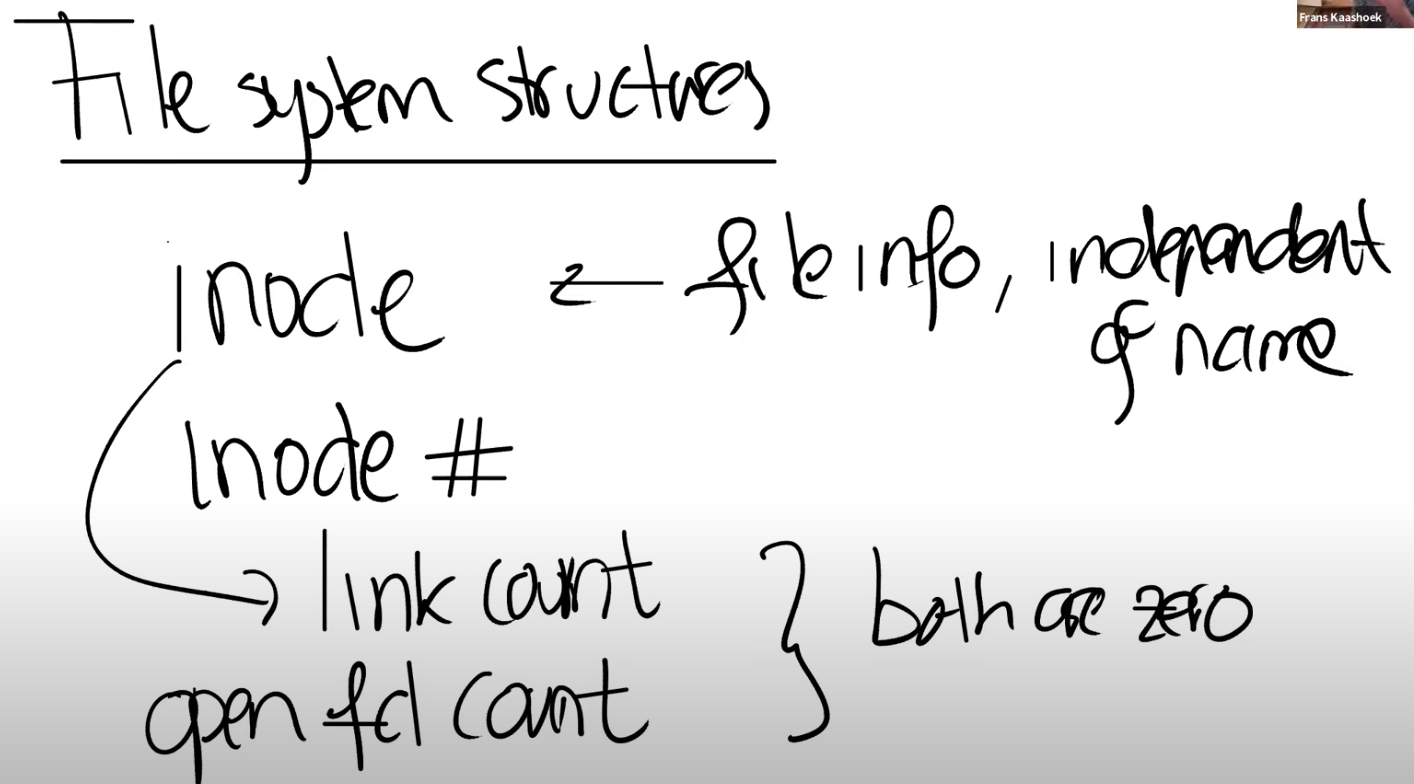 Frans Kaashoek
File system structures
inode ← file info, independent
of name
inode #
link count } both are zero
open fd count